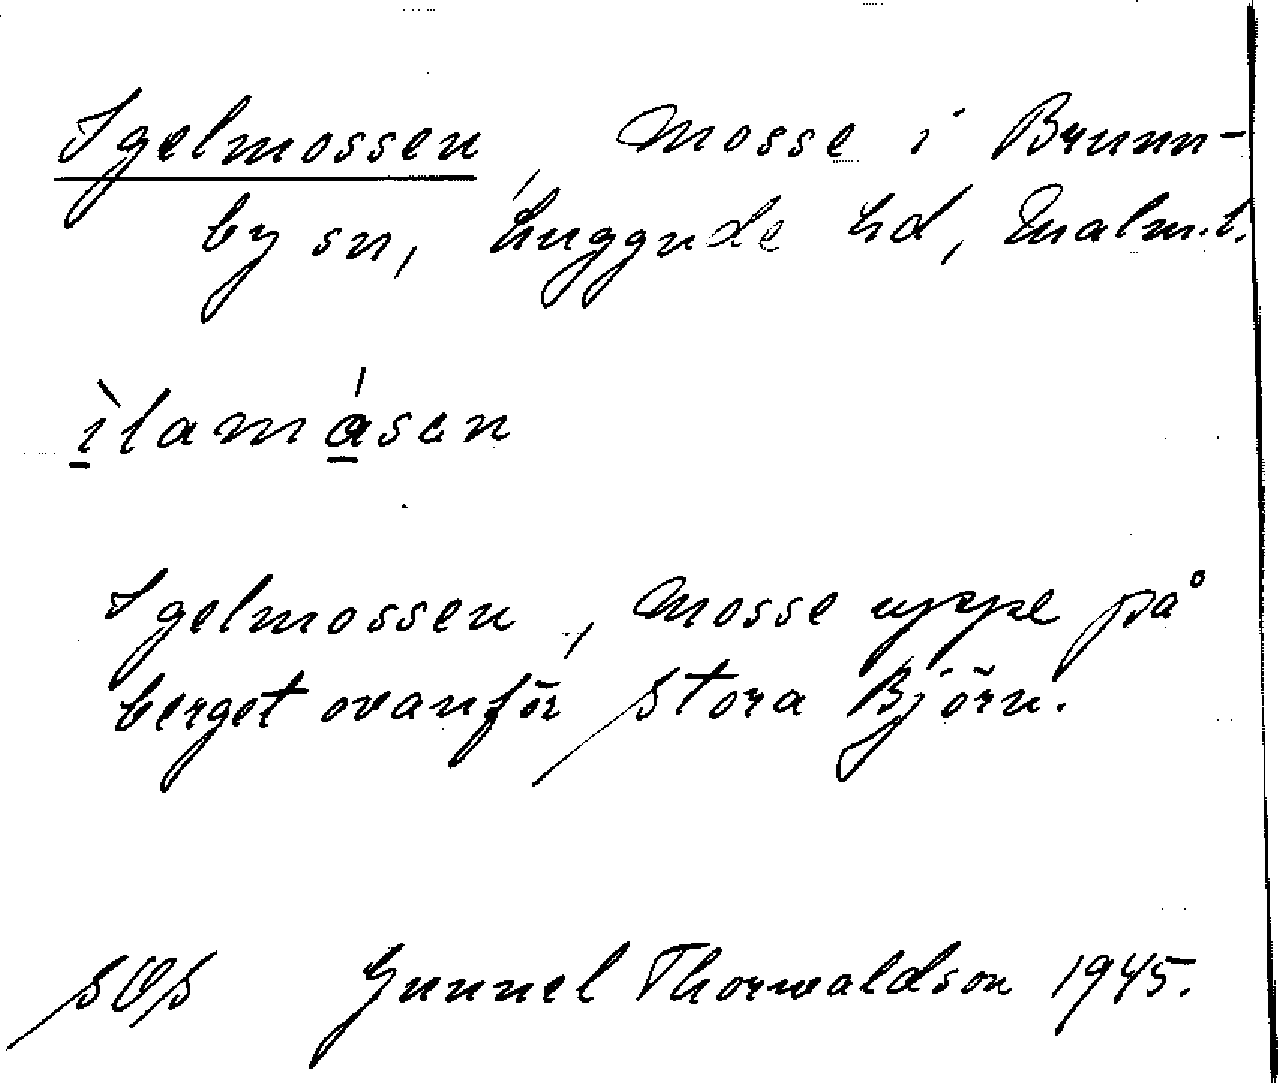 Igelmossen, Mosse i Brunn-
by sn, Luggude hd, Malm.l.
ìlamásen
Igelmossen, Mosse uppe på
berget ovanför Stora Björn.
SOS Gunnel Thorwaldson 1945.